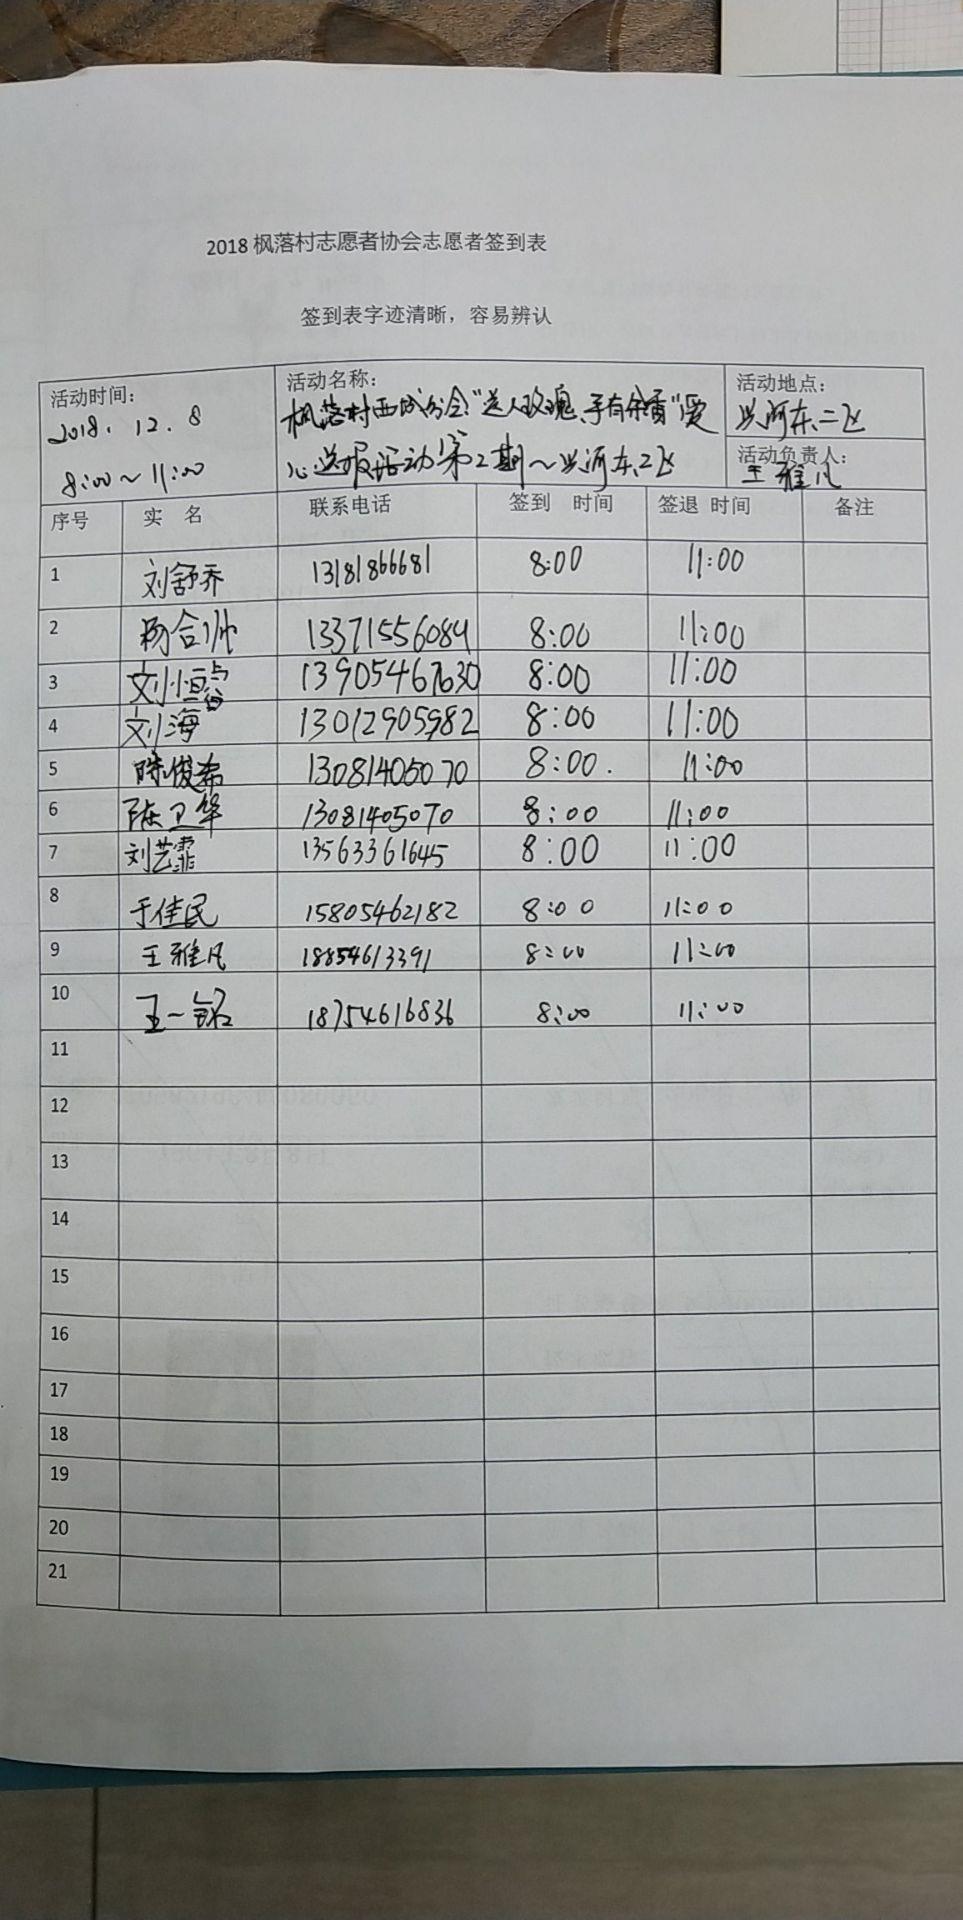 2018 枫落村志愿者协会志愿者签到表
签到表字迹清晰，容易辨认
活动时间：
2018. 12. 8
8:00～11:00
活动名称：
枫落村西城分会"送人玫瑰,手有余香"爱
心送报活动第2期～兴河东二区
活动地点：
兴河东二区
活动负责人：
王雅凡
序号 实 名 联系电话 签到 时间 签退 时间 备注
1 刘舒乔 13181866681 8:00 11:00
2 杨合帅 13371556084 8:00 11:00
3 刘恒 13905467630 8:00 11:00
4 刘海 13012905982 8:00 11:00
5 陈俊希 13081405070 8:00. 11:00
6 陈卫华 13081405070 8:00 11:00
7 刘艺霏 13563361645 8:00 11:00
8 于佳民 15805462182 8:00 11:00
9 王雅凡 18854613391 8:00 11:00
10 王一铭 18754616836 8:00 11:00
11
12
13
14
15
16
17
18
19
20
21